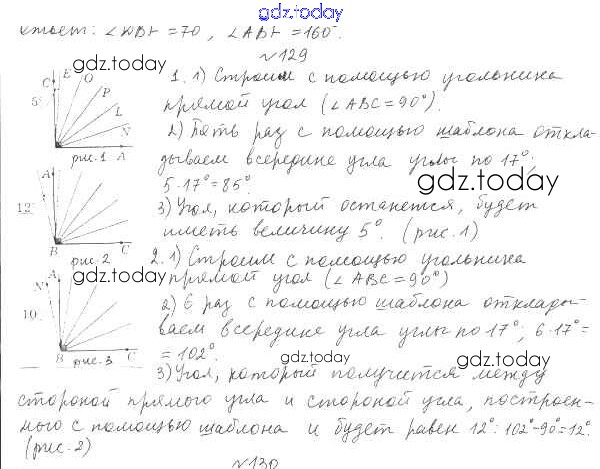 gdz.today
ответ: ∠KBF = 70, ∠ABF = 160°.
gdz.today
№129
1. 1) Строим с помощью угольника
прямой угол (∠ABC = 90°).
2) Пять раз с помощью шаблона откла-
дываем всередине угла углы по 17°;
5·17° = 85°.
gdz.today
3) Угол, который останется, будет
иметь величину 5°. (рис. 1)
C E O P L N A
5°
рис. 1
gdz.today
2. 1) Строим с помощью угольника
прямой угол (∠ABC = 90°)
2) 6 раз с помощью шаблона отклады-
ваем всередине угла углы по 17°; 6·17° =
= 102°.
A
12
B C
рис. 2
gdz.today
A N
10
B C
рис. 3
gdz.today
gdz.today
3) Угол, который получится между
стороной прямого угла и стороной угла, построен-
ного с помощью шаблона и будет равен 12°: 102°-90°=12°.
(рис. 2)
gdz.today
gdz.today
№130